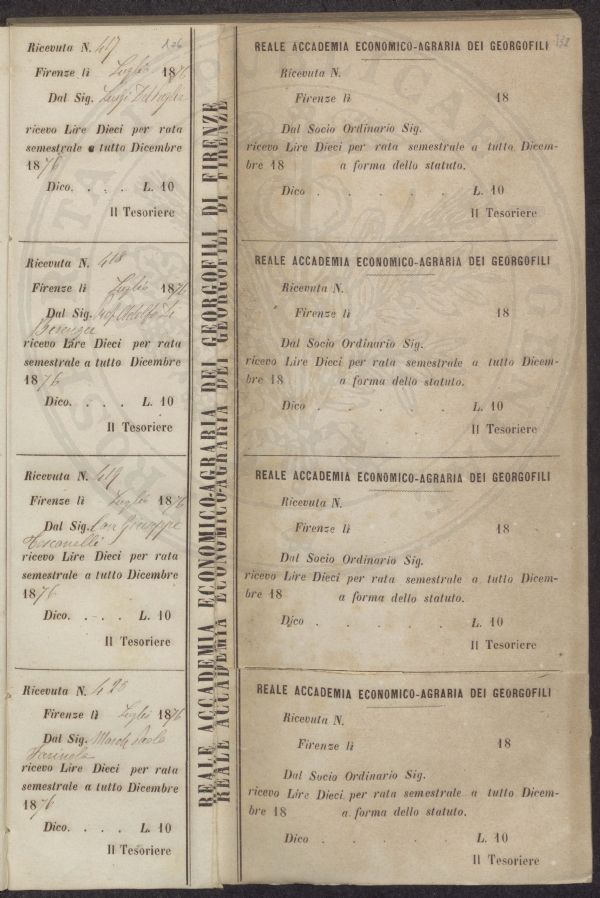 136
Ricevuta N. 417
Firenze lì Luglio 1876
Dal Sig. Luigi
ricevo Lire Dieci per rata
semestrale a tutto Dicembre
1876
Dico. . . . L. 10
Il Tesoriere
Ricevuta N. 418
Firenze lì Luglio 1876
Dal Sig. Prof Adolfo di
Berenger
ricevo Lire Dieci per rata
semestrale a tutto Dicembre
1876
Dico. . . . L. 10
Il Tesoriere
Ricevuta N. 419
Firenze lì Luglio 1876
Dal Sig. Cav Giuseppe
Toscanelli
ricevo Lire Dieci per rata
semestrale a tutto Dicembre
1876
Dico. . . . L. 10
Il Tesoriere
Ricevuta N. 420
Firenze lì Luglio 1876
Dal Sig. March Paolo
Farinola
ricevo Lire Dieci per rata
semestrale a tutto Dicembre
1876
Dico. . . . L. 10
Il Tesoriere
REALE ACCADEMIA ECONOMICO-AGRARIA DEI GEORGOFILI DI FIRENZE
REALE ACCADEMIA ECONOMICO-AGRARIA DEI GEORGOFILI DI FIRENZE
132
REALE ACCADEMIA ECONOMICO-AGRARIA DEI GEORGOFILI
Ricevuta N.
Firenze lì 18
Dal Socio Ordinario Sig.
ricevo Lire Dieci per rata semestrale a tutto Dicem-
bre 18 a forma dello statuto.
Dico . . . . . L. 10
Il Tesoriere
REALE ACCADEMIA ECONOMICO-AGRARIA DEI GEORGOFILI
Ricevuta N.
Firenze lì 18
Dal Socio Ordinario Sig.
ricevo Lire Dieci per rata semestrale a tutto Dicem-
bre 18 a forma dello statuto.
Dico . . . . . L. 10
Il Tesoriere
REALE ACCADEMIA ECONOMICO-AGRARIA DEI GEORGOFILI
Ricevuta N.
Firenze lì 18
Dal Socio Ordinario Sig.
ricevo Lire Dieci per rata semestrale a tutto Dicem-
bre 18 a forma dello statuto.
Dico . . . . . L. 10
Il Tesoriere
REALE ACCADEMIA ECONOMICO-AGRARIA DEI GEORGOFILI
Ricevuta N.
Firenze lì 18
Dal Socio Ordinario Sig.
ricevo Lire Dieci per rata semestrale a tutto Dicem-
bre 18 a forma dello statuto.
Dico . . . . . L. 10
Il Tesoriere